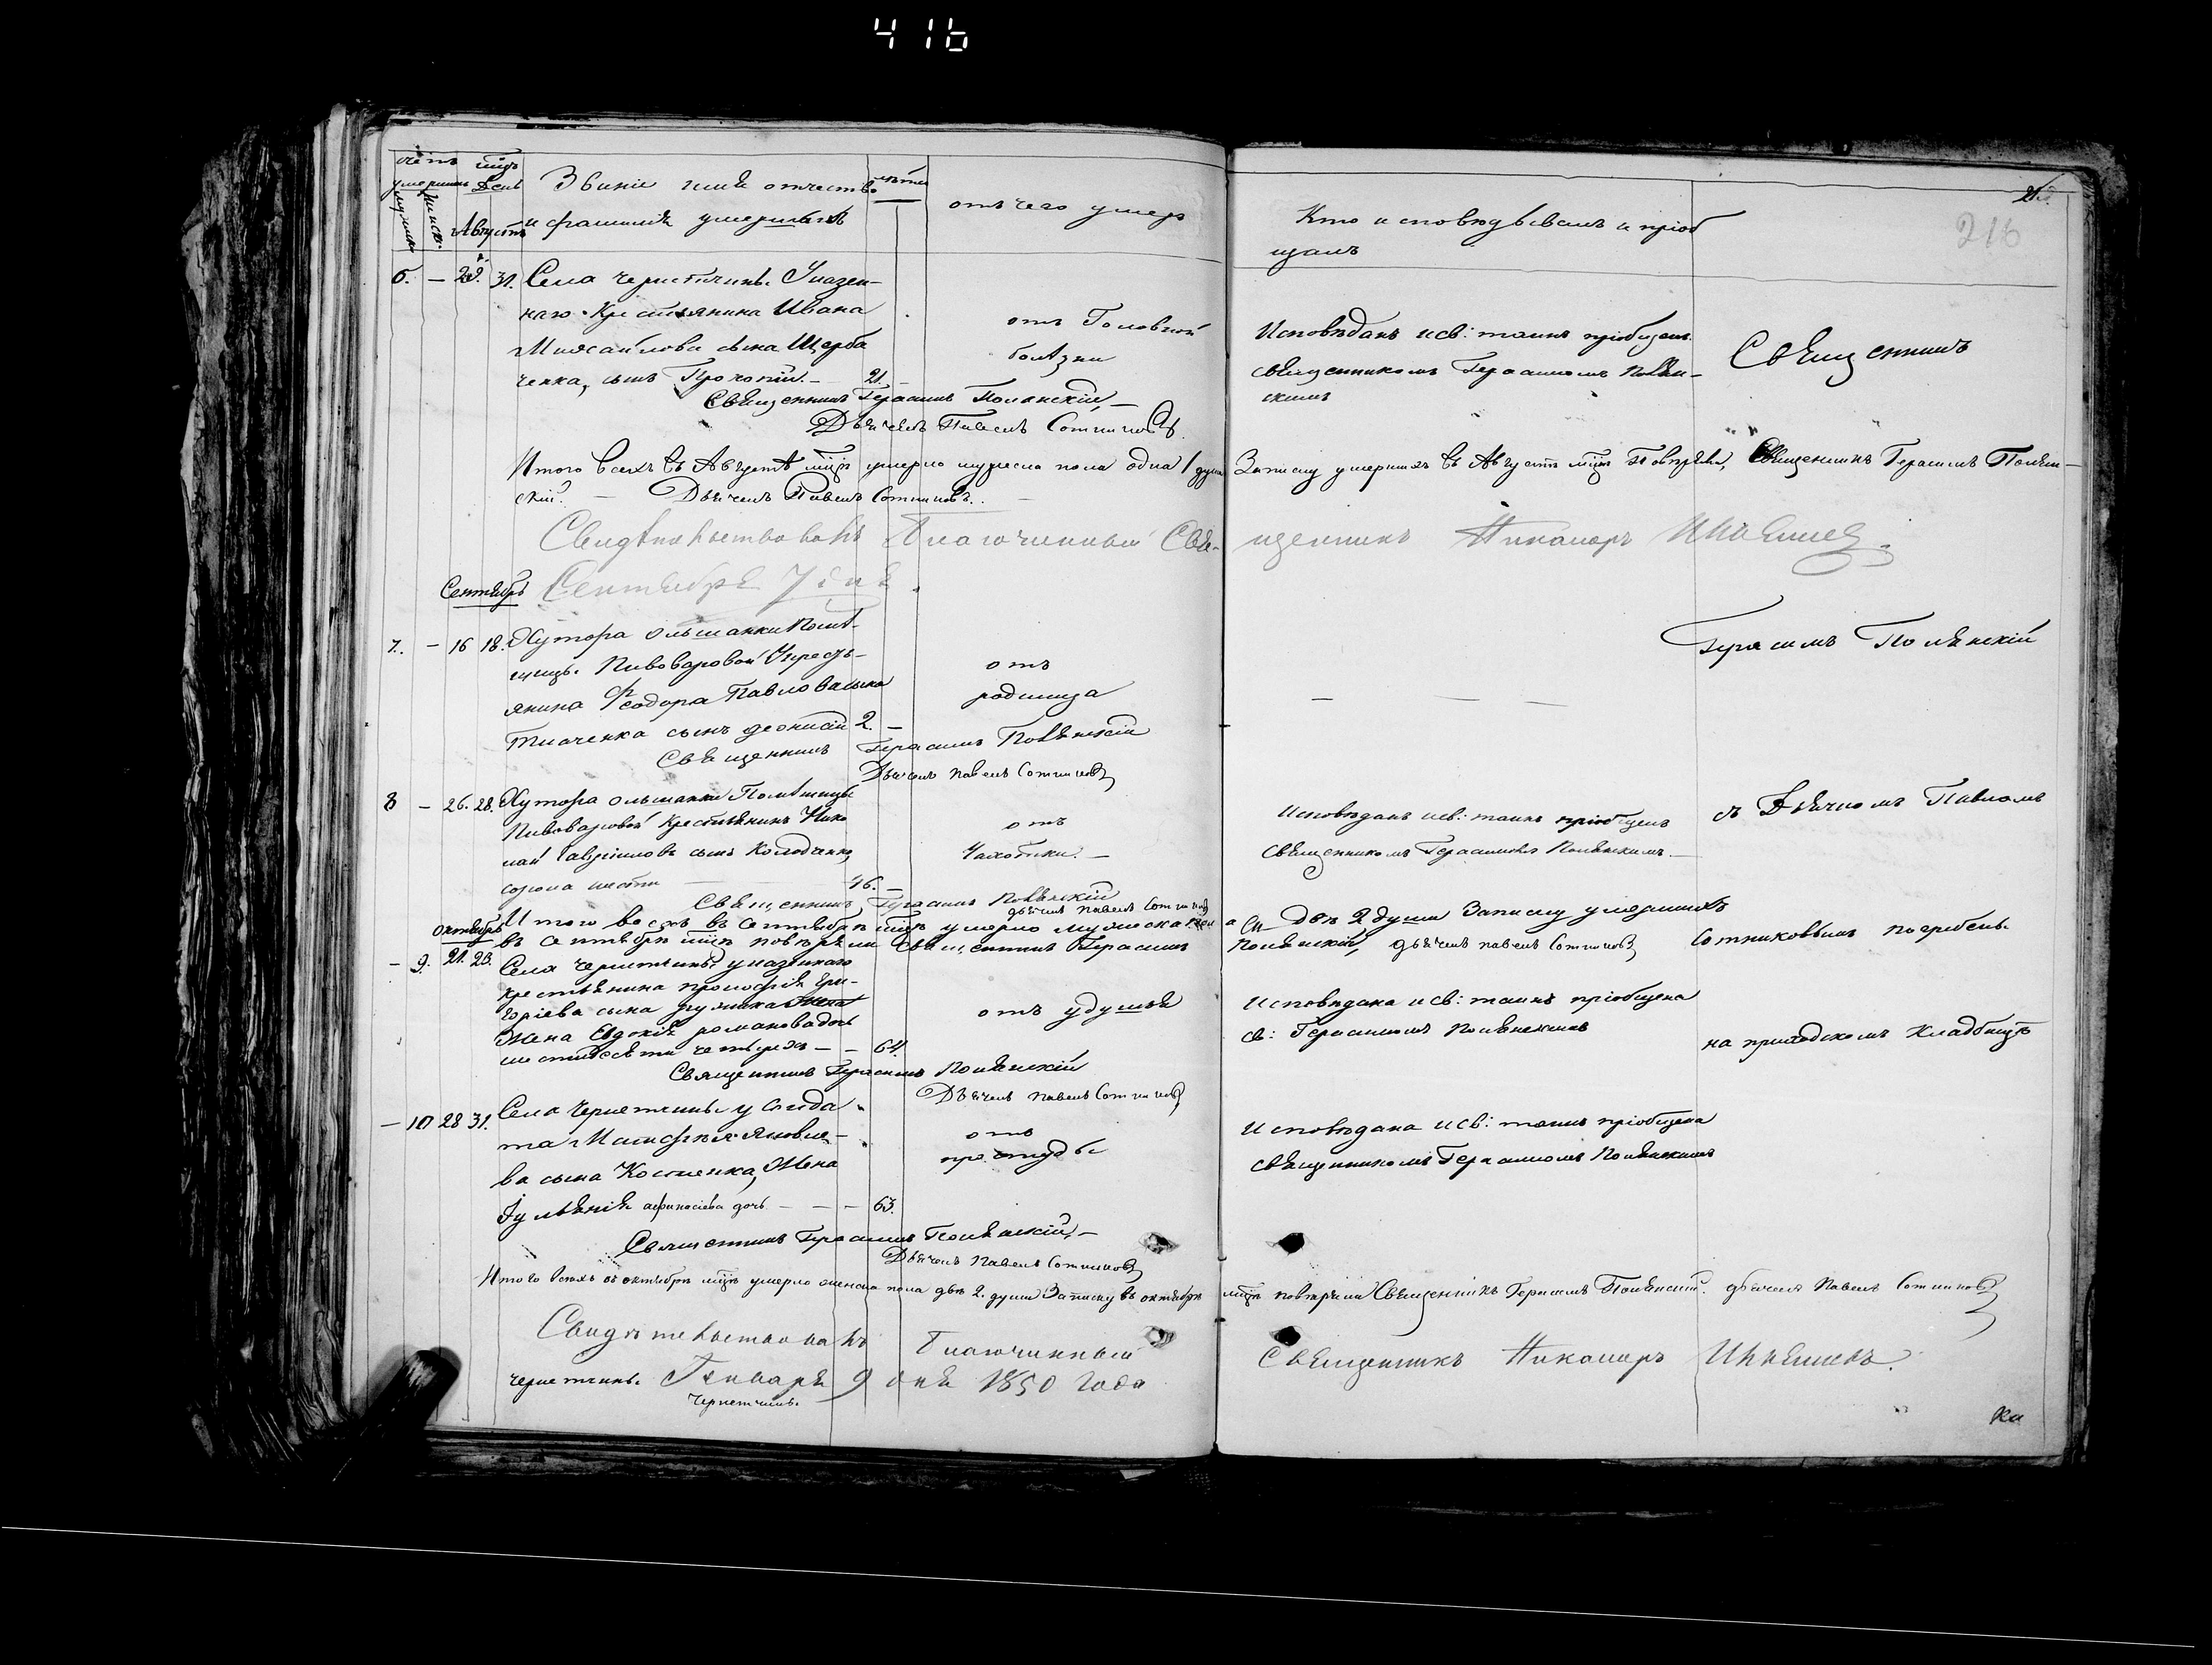 416
счетъ мцъ
умершихъ День
мужеска женска
Августъ
Званіе имя отчество
и фамилія умершаго
лѣта
отъ чего умеръ
Кто исповѣдывалъ и пріоб
щалъ
216
6. — 29. 31. Села Чернетчины Указен-
наго Крестьянина Ивана
Михайлова сына Щерба
ченка, сынъ Прокопій. — 21. —
отъ Головной
болѣзни
Исповѣданъ и св: таинъ пріобщенъ
священникомъ Герасимомъ Полян-
скимъ
Священникъ
Священникъ Герасимъ Полянскій, —
Дьячекъ Павелъ Сотниковъ.
Итого всехъ въ Августѣ мцѣ умерло мужеска пола одна 1 душа Записку умершихъ въ Августѣ мцѣ повѣряли, Священникъ Герасимъ Полян—
скій. — Дьячекъ Павелъ Сотниковъ. —
Свидѣтельствовалъ Благочинный Свя- щенникъ Никаноръ
Сентября 7 дня.
Сентябрь
7. — 16 18. Хутора Ольшанки Помѣ-
щицы Пивоваровой Крестья-
янина Феодора Павлова сына
Ткаченка сынъ Деонисій 2. —
отъ
родимца
— — —
Герасимъ Полянскій
Священникъ Герасимъ Полянскій
Дьячекъ Павелъ Сотниковъ
8 — 26. 28. Хутора Ольшанки Помѣщицы
Пивоваровой Крестьянинъ Нико
лай Гавріиловъ сынъ Колодченко,
сорока шести — 46. —
отъ
Чахотки. —
Исповѣданъ и св: таинъ пріобщенъ
Священникомъ Герасимомъ Полянскимъ. —
съ Дьячкомъ Павломъ
Священникъ Герасимъ Полянскій
дьячекъ Павелъ Сотниковъ
Итого всехъ въ Сентябрѣ мцѣ умерло мужеска пола двѣ 2 души Записку умершихъ
въ Сентябрѣ мцѣ повѣряли Священникъ Герасимъ Полянскій, дьячекъ Павелъ Сотниковъ
Сотниковымъ погребены.
октябрь
— 9. 21. 23. Села Чернетчины указеннаго
крестьянина Прокофія Гри-
горіева сына
Жена Евдокія романова дочь
шестидесяти четырехъ — — 64.
отъ удушья
Исповѣдана и св: таинъ пріобщена
св: Герасимомъ Полянскимъ
на приходскомъ Кладбищѣ
Священникъ Герасимъ Полянскій
Дьячекъ Павелъ Сотниковъ
— 10 28 31. Села Чернетчины у Солда
та Яковле-
ва сына Костенка, Жена
Іульянія афанасіева дочь — — — 63.
отъ
простуды
Исповѣдана и св: таинъ пріобщена
священникомъ Герасимомъ Полянскимъ
Священникъ Герасимъ Полянскій, —
Дьячекъ Павелъ Сотниковъ
Итого всехъ въ октябрѣ мцѣ умерло женска пола двѣ 2. души Записку въ октябрѣ мцѣ повѣряли Священникъ Герасимъ Полянскій. дьячекъ Павелъ Сотниковъ
Свидѣтельствовалъ Благочинный Священникъ Никаноръ
Чернетчины Января 9 дня 1850 года
Чернетчины